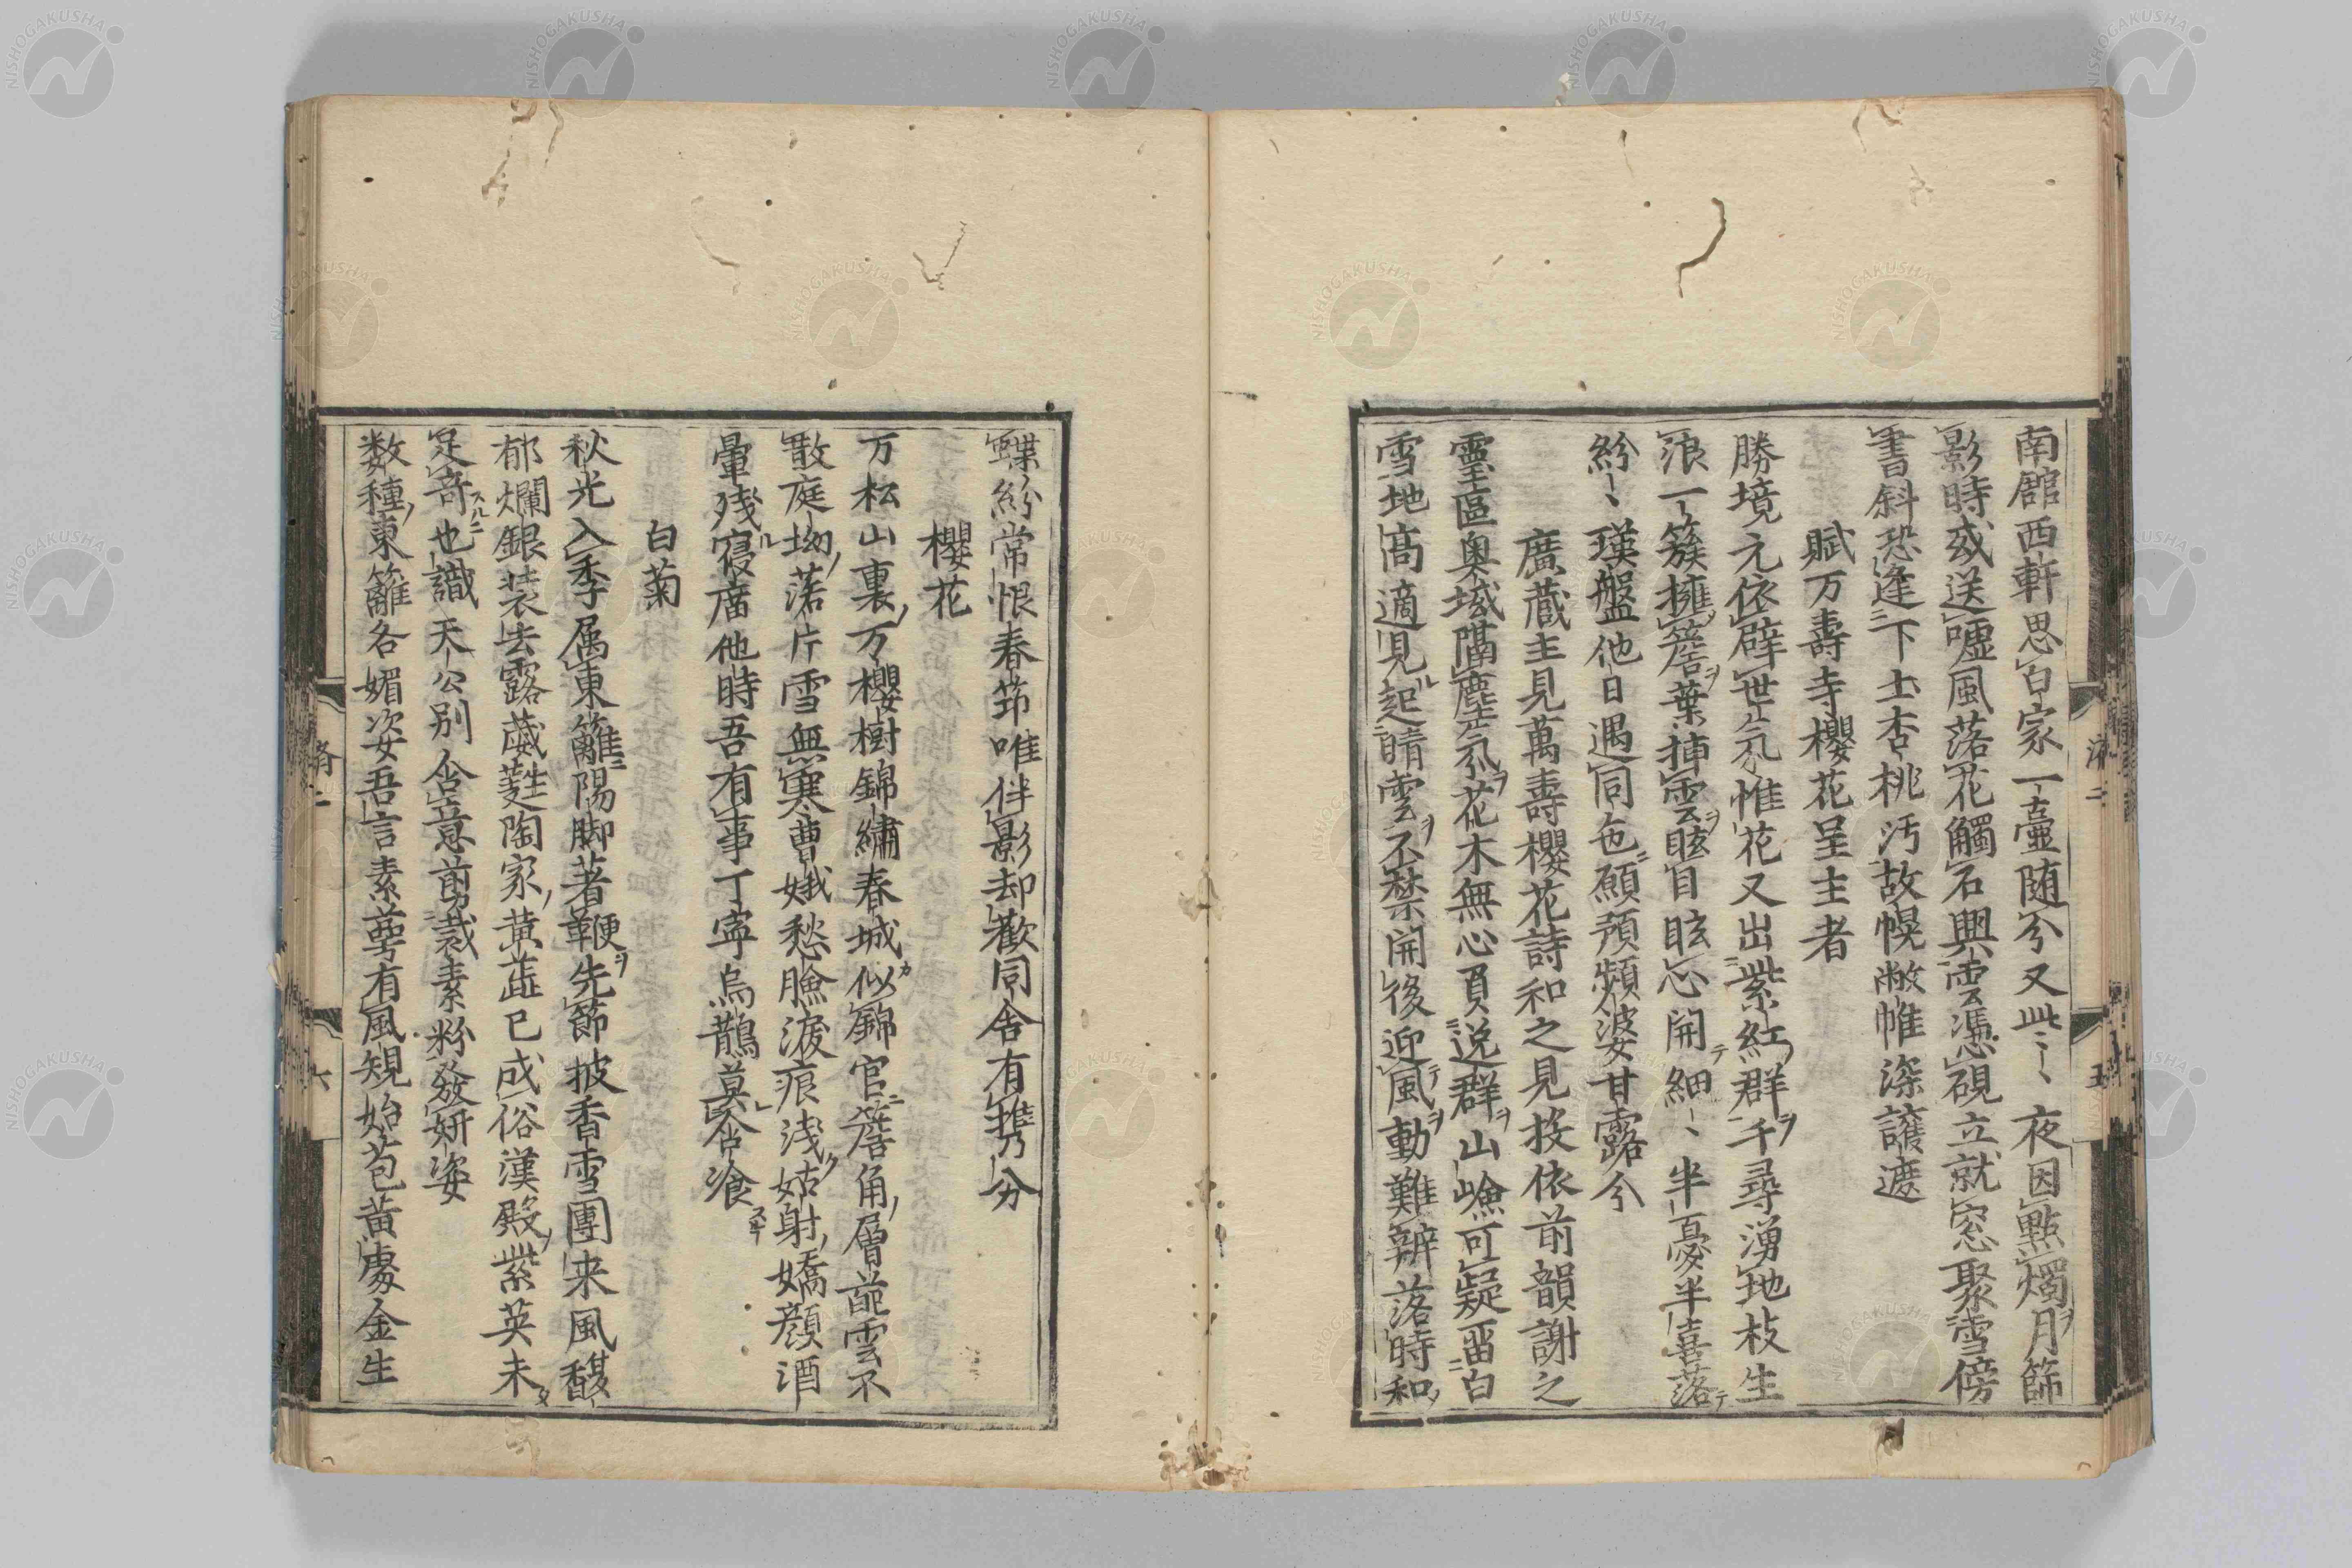 南館西軒思白家一壷随兮又此〻夜因點燭月篩
影時或送嘘風落花觸石興雲憑硯立就窓聚雪傍
書斜恐逢下士杏桃汚故幌敝帷深護遮
賦万壽寺櫻花呈主者
勝境元依辟世氛惟花又出紫紅群千尋湧地枝生
浪一簇擁簷葉挿雲眩目眩心開細〻半憂半喜落
紛〻瑛盤他日遇同色願預頻婆甘露分
廣蔵主見萬壽櫻花詩和之見投依前韻謝之
靈區奥域隔塵氛花木無心頁逸群山嶮可疑畱白
雪地高適見起晴雲不禁開後迎風動難辨落時和
蝶紛常恨春笻唯伴影却歡同舎有携分
櫻花
万松山裏万櫻樹錦繡春城似錦官簷角層葩雲不
散庭坳落片雪無寒曹娥愁臉淚痕浅姑射嬌顔酒
暈残寝廣他時吾有事丁寧烏鵲莫含飡
白菊
秋光入季属東籬陽脚著鞭先節披香雪團来風馥
郁爛銀装去露葳蕤陶家黄蘂已成俗漢殿紫英未
足奇也識天公別含意剪裁素粉發妍姿
数種東籬各媚姿吾言素萼有風規始苞黄處金生
済二
五
六
NISHOGAKUSHA